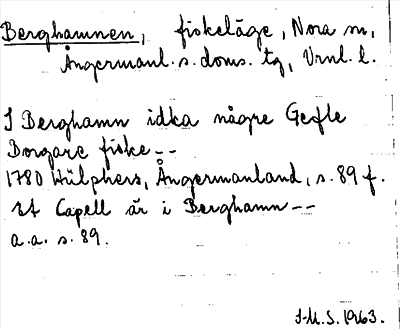 Berghamnen, fiskeläge, Nora sn,
Ångermanl. s. doms. tg, Vrnl. l.
I Berghamn idka någre Gefle
Borgare fiske--
1780 Hülphers, Ångermanland, s. 89 f.
Et Capell är i Berghamn--
a.a. s. 89.
I-M. S. 1963.